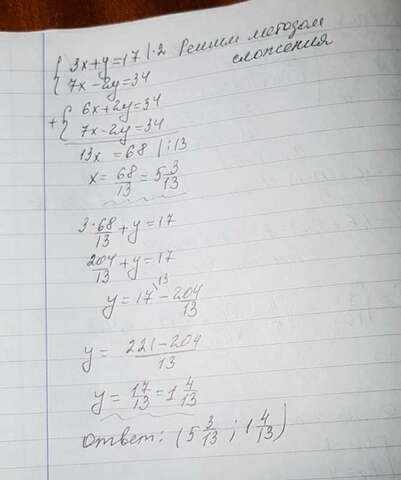 {3x+y=17 |·2 Решим методом
{7x-2y=34 сложения
+{6x+2y=34
{7x-2y=34
13x = 68 |:13
x = 68/13 = 5 3/13
3·68/13 + y = 17
204/13 + y = 17
y = 17^13 - 204/13
y = 221-204/13
y = 17/13 = 1 4/13
Ответ: (5 3/13 ; 1 4/13)